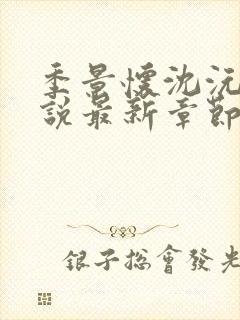 季景懷沈沅
說最新章節
銀子總會發光